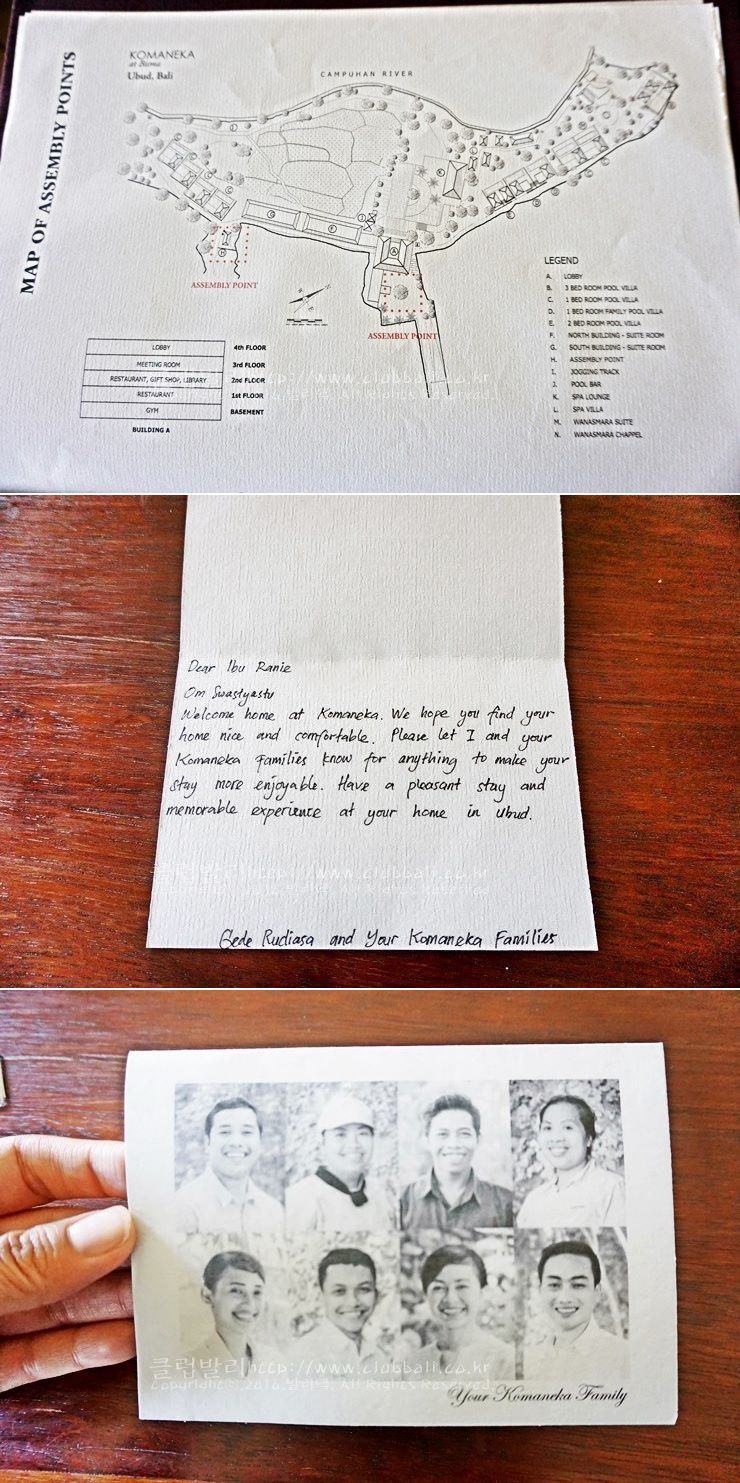 MAP OF ASSEMBLY POINTS
KOMANEKA
at Bisma
Ubud, Bali
CAMPUHAN RIVER
ASSEMBLY POINT
ASSEMBLY POINT
LEGEND
A. LOBBY
B. 3 BED ROOM POOL VILLA
C. 1 BED ROOM POOL VILLA
D. 1 BED ROOM FAMILY POOL VILLA
E. 2 BED ROOM POOL VILLA
F. NORTH BUILDING - SUITE ROOM
G. SOUTH BUILDING - SUITE ROOM
H. ASSEMBLY POINT
I. JOGGING TRACK
J. POOL BAR
K. SPA LOUNGE
L. SPA VILLA
M. WANASMARA SUITE
N. WANASMARA CHAPPEL
LOBBY 4th FLOOR
MEETING ROOM 3rd FLOOR
RESTAURANT, GIFT SHOP, LIBRARY 2nd FLOOR
RESTAURANT 1st FLOOR
GYM BASEMENT
BUILDING A
http://www.clubbali.co.kr
All Rights Reserved
Dear Ibu Ranie
Om Swastyastu
Welcome home at Komaneka. We hope you find your
home nice and comfortable. Please let I and your
Komaneka Families know for anything to make your
stay more enjoyable. Have a pleasant stay and
memorable experience at your home in Ubud.
클럽발리 http://www.clubbali.co.kr
All Rights Reserved
Gede Rudiasa and Your Komaneka Families
클럽발리 http://www.clubbali.co.kr
Copyright © 2016 All Rights Reserved
Your Komaneka Family